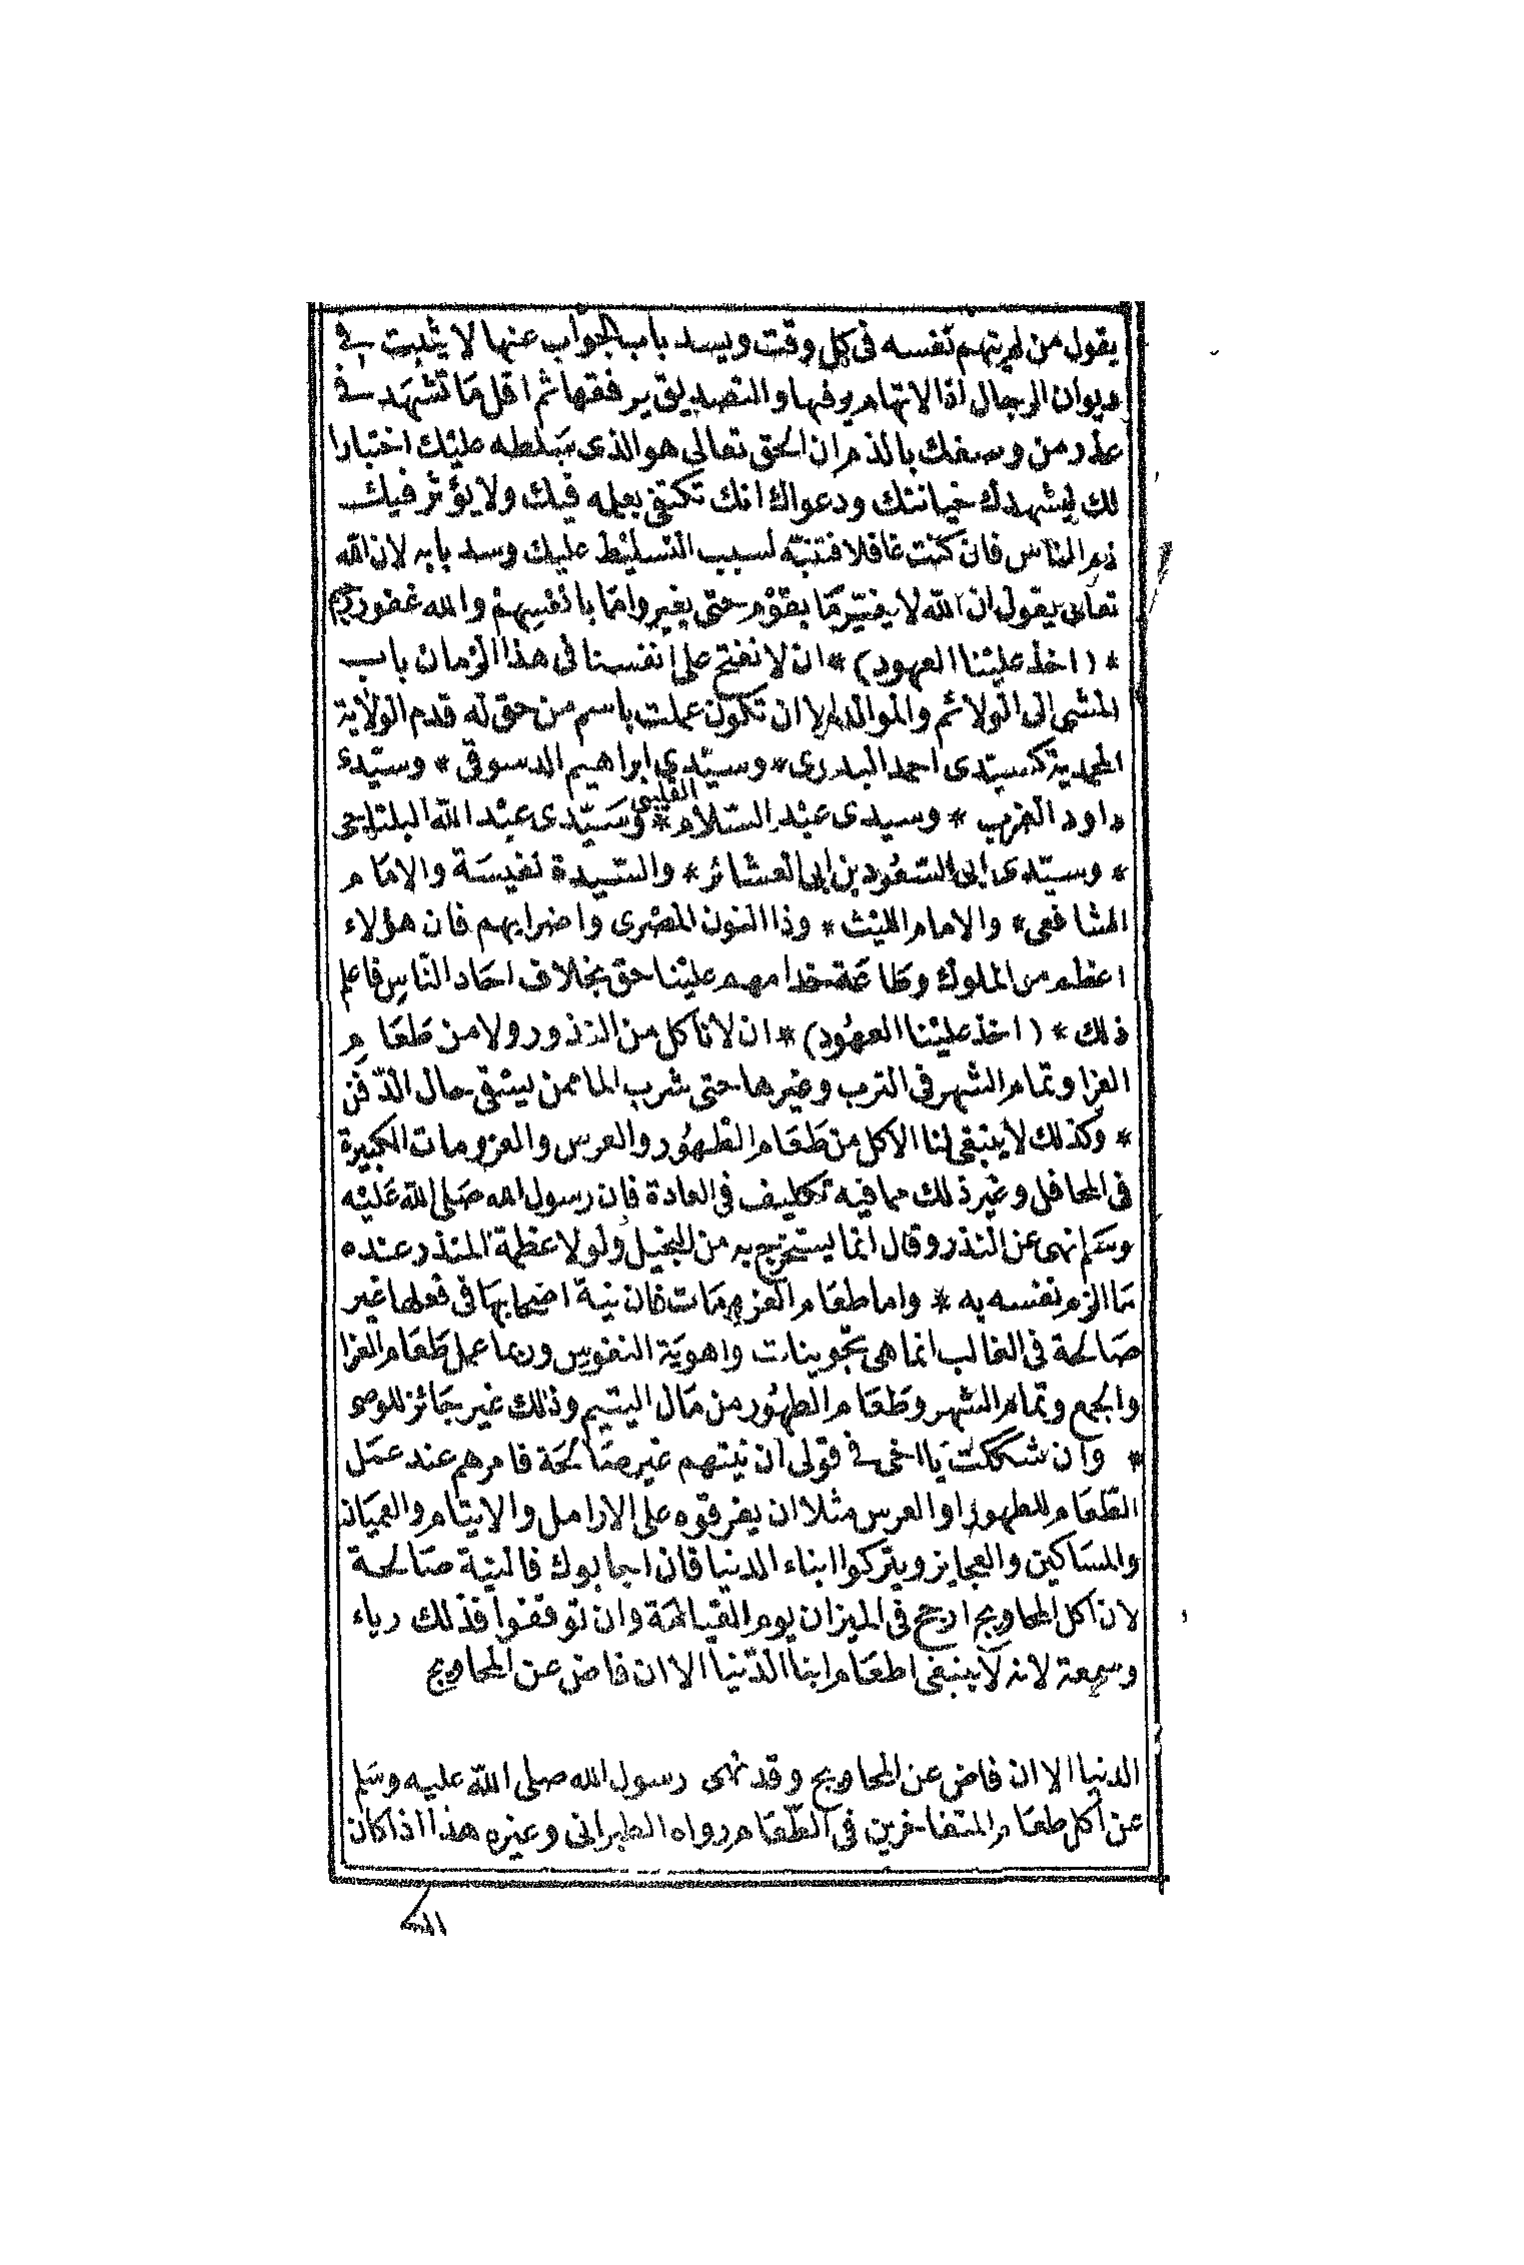 يقول من لم يتهم نفسه فى كل وقت ويسد باب الجواب عنها لا يثبت فى
ديوان الرجال اذ الاتهام يوفها والتصديق يرفقها ثم اقل ما تشهد فى
عذر من وصفك بالذم ان الحق تعالى هو الذى سلطه عليك اختبارا
لك ليشهدك خيانتك ودعواك انك تكتفى بعلمه فيك ولا يؤثر فيك
ذم الناس فان كنت غافلا فتنبه لسبب التسليط عليك وسد بابه لان الله
تعالى يقول ان الله لا يغير ما بقوم حتى يغيروا ما بانفسهم والله غفور رحيم
* (اخذ علينا العهود) * ان لا نفتح على انفسنا فى هذا الزمان باب
المشى الى الولائم والموالد الا ان تكون عملت باسم من حق له قدم الولاية
المحمدية كسيدى احمد البدوى * وسيدى ابراهيم الدسوقى * وسيدى
داود العزب * وسيدى عبد السلام القليبى * وسيدى عبد الله البلتاجى
* وسيدى ابى السعود بن ابى العشائر * والسيدة نفيسة والامام
الشافعى * والامام الليث * وذا النون المصرى واضرابهم فان هؤلاء
اعظم من الملوك وطاعة خدامهم علينا حق بخلاف احاد الناس فاعلم
ذلك * (اخذ علينا العهود) * ان لا ناكل من النذور ولا من طعام
العزا وتمام الشهر فى الترب وغيرها حتى شرب الما ممن يسقى حال الدفن
* وكذلك لا ينبغى لنا الاكل من طعام الطهور والعرس والعزومات الكبيرة
فى المحافل وغير ذلك مما فيه تكليف فى العادة فان رسول الله صلى الله عليه
وسلم نهى عن النذر وقال انما يستخرج به من البخيل ولولا عظمة المنذر عنده
ما الزم نفسه به * واما طعام العزومات فان نية اصحابها فى فعلها غير
صالحة فى الغالب انما هى تجوينات واهوية النفوس وربما عمل طعام العزا
والجمع وتمام الشهر وطعام الطهور من مال اليتيم وذلك غير جائز للوصى
* وان شككت يا اخى فى قولى ان نيتهم غير صالحة فامرهم عند عمل
الطعام للطهور او العرس مثلا ان يفرقوه على الارامل والايتام والعميان
والمساكين والعجايز ويتركوا ابناء الدنيا فان اجابوك فالنية صالحة
لان اكل المحاويج ارجح فى الميزان يوم القيامة وان توقفوا فذلك رياء
وسمعة لانه لا ينبغى اطعام ابنا الدنيا الا ان فاض عن المحاويج
الدنيا الا ان فاض عن المحاويج وقد نهى رسول الله صلى الله عليه وسلم
عن اكل طعام المتفاخرين فى الطعام رواه الطبرانى وغيره هذا اذا كان